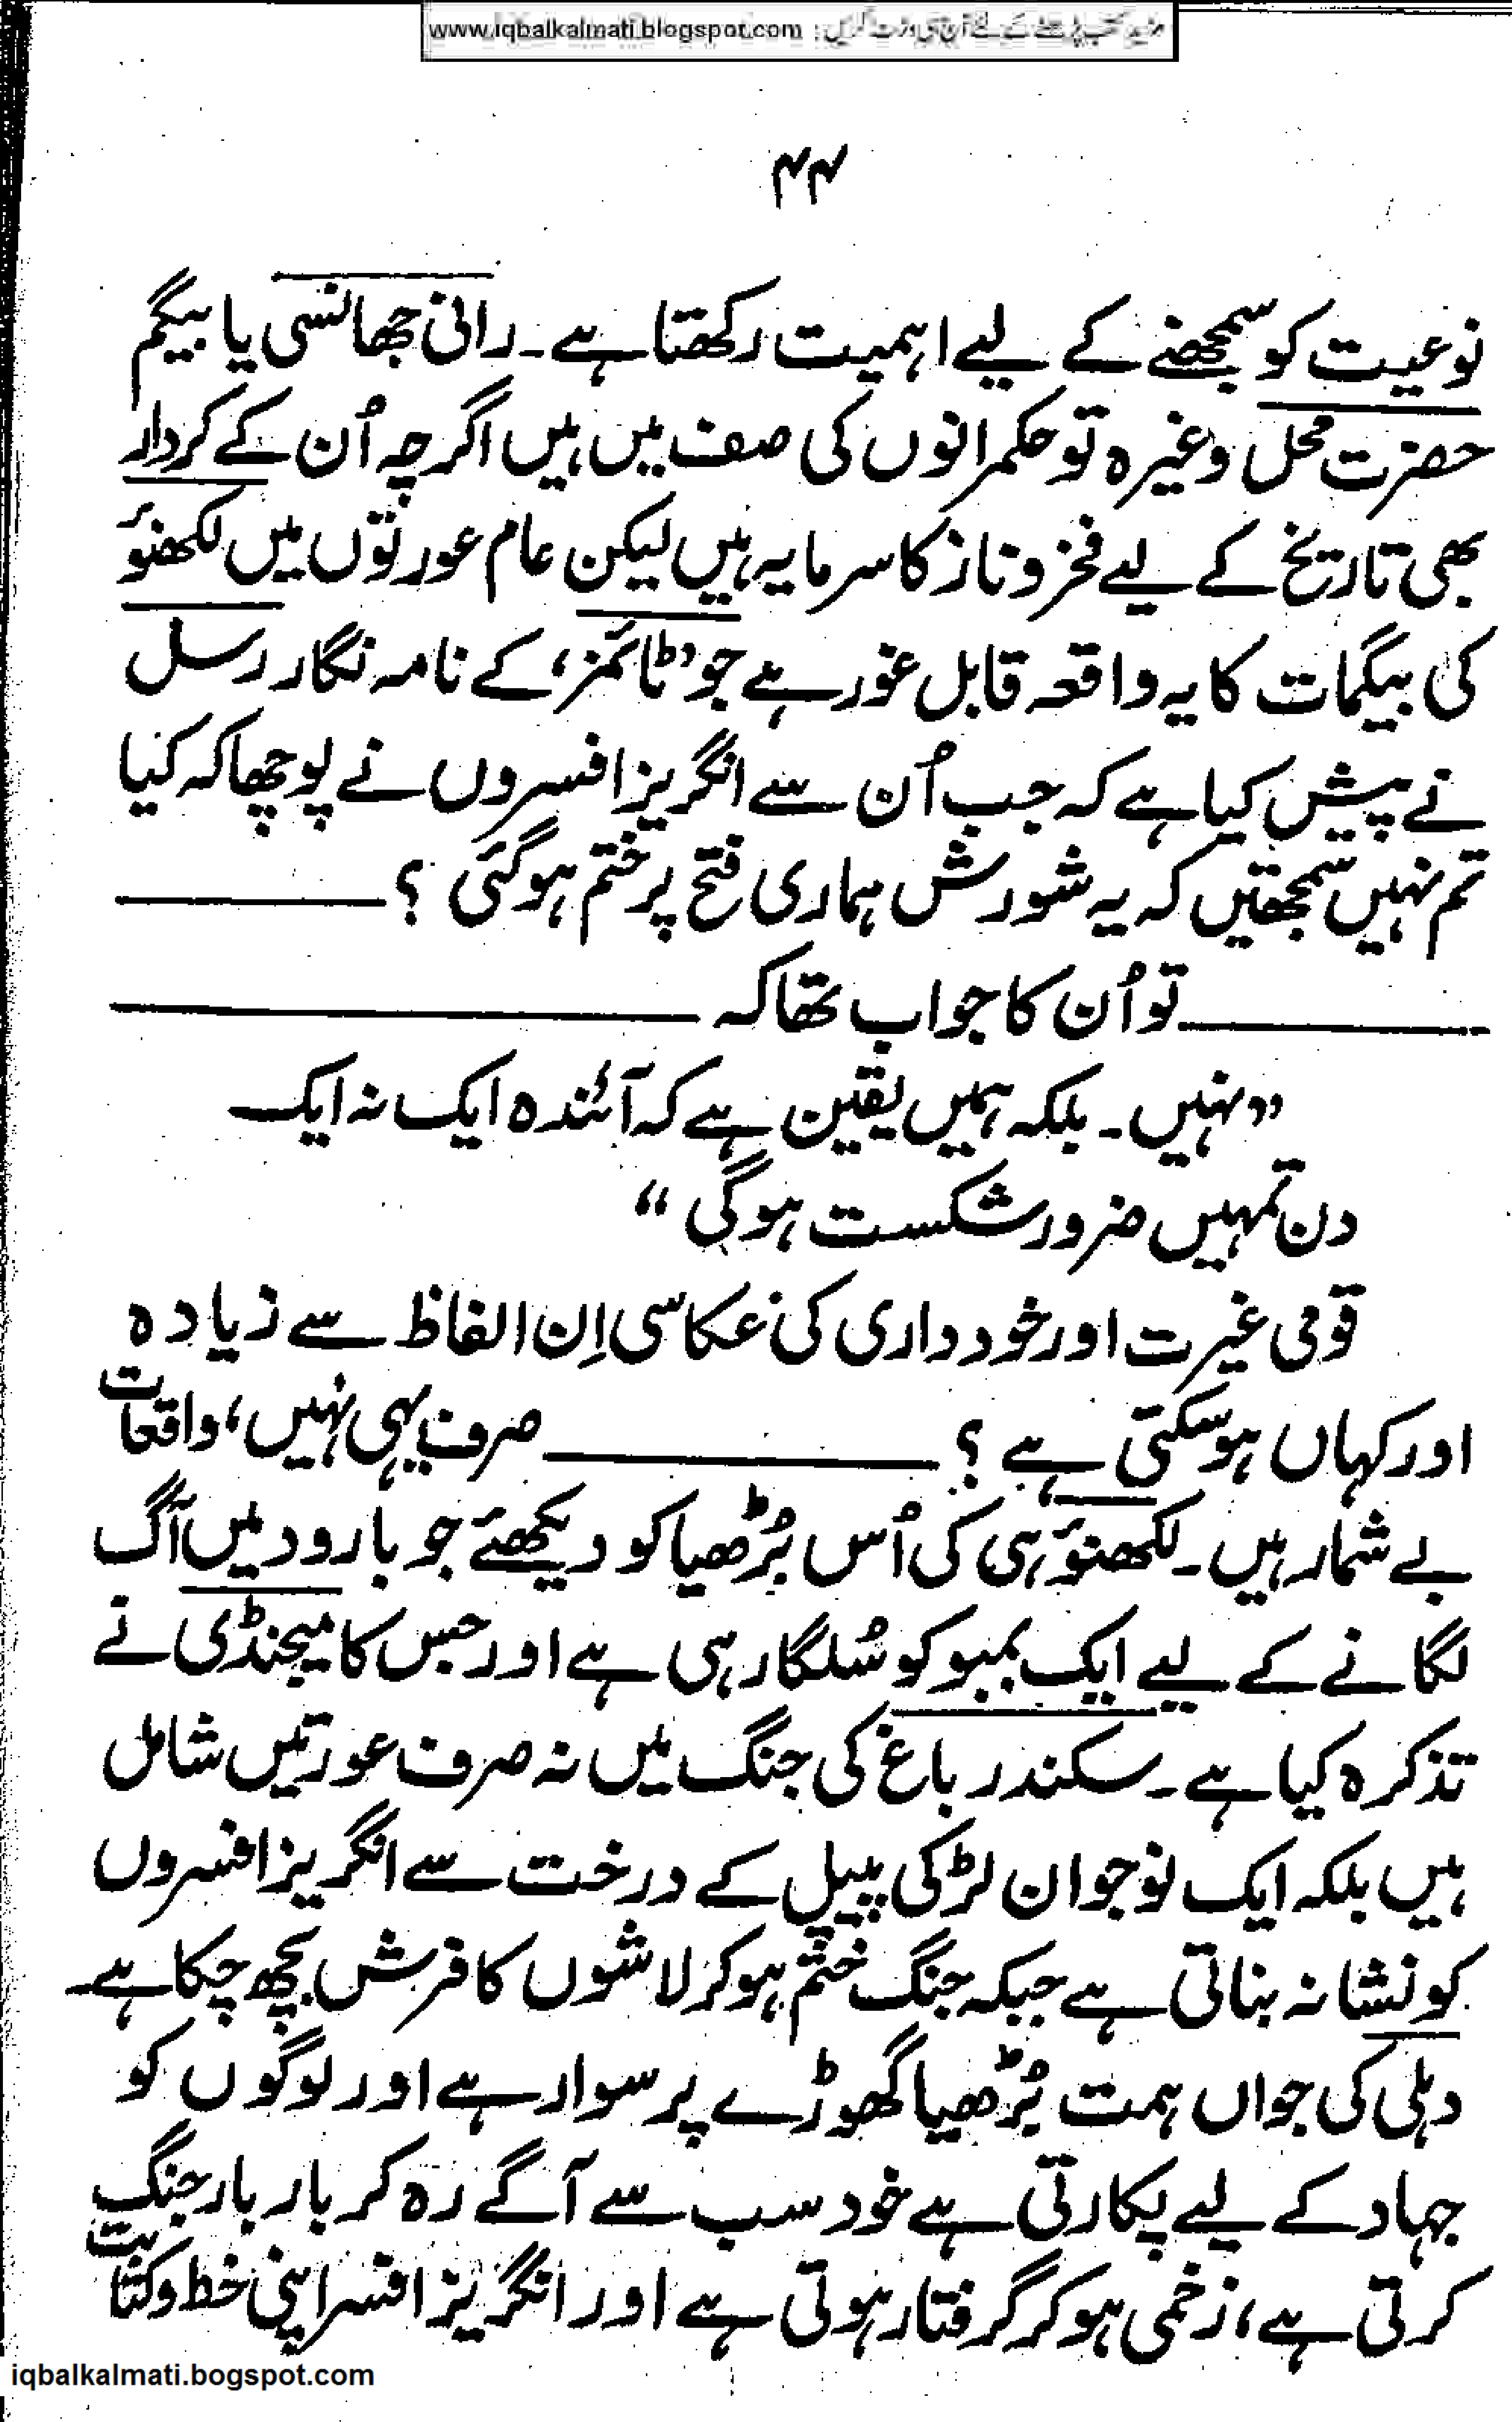 www.iqbalkalmati.blogspot.com : مزید کتب پڑھنے کے لئے آج ہی وزٹ کریں
۴۴
نوعیت کو سمجھنے کے لیے اہمیت رکھتا ہے۔ رانی جھانسی یا بیگم
حضرت محل وغیرہ تو حکمرانوں کی صف میں ہیں اگرچہ اُن کے کردار
بھی تاریخ کے لیے فخر و ناز کا سرمایہ ہیں لیکن عام عورتوں میں لکھنؤ
کی بیگمات کا یہ واقعہ قابل غور ہے جو ’ٹائمز‘ کے نامہ نگار رسل
نے پیش کیا ہے کہ جب اُن سے انگریز افسروں نے پوچھا کہ کیا
تم نہیں سمجھتیں کہ یہ شورش ہماری فتح پر ختم ہوگئی ؟ ــــــــــ
ــــــــــ تو اُن کا جواب تھا کہ ــــــــــ
”نہیں۔ بلکہ ہمیں یقین ہے کہ آئندہ ایک نہ ایک
دن تمہیں ضرور شکست ہوگی“
قومی غیرت اور خودداری کی عکاسی اِن الفاظ سے زیادہ
اور کہاں ہوسکتی ہے ؟ ــــــــــ صرف یہی نہیں، واقعات
بے شمار ہیں۔ لکھنؤ ہی کی اُس بُڑھیا کو دیکھئے جو بارود میں آگ
لگانے کے لیے ایک بمبو کو سُلگا رہی ہے اور جس کا میجنڈی نے
تذکرہ کیا ہے۔ سکندر باغ کی جنگ میں نہ صرف عورتیں شامل
ہیں بلکہ ایک نوجوان لڑکی پیپل کے درخت سے انگریز افسروں
کو نشانہ بناتی ہے جبکہ جنگ ختم ہوکر لاشوں کا فرش بچھ چکا ہے۔
دہلی کی جواں ہمت بُڑھیا گھوڑے پر سوار ہے اور لوگوں کو
جہاد کے لیے پکارتی ہے خود سب سے آگے رہ کر بار بار جنگ
کرتی ہے، زخمی ہوکر گرفتار ہوتی ہے اور انگریز افسر اپنی خط و کتابت
iqbalkalmati.bogspot.com